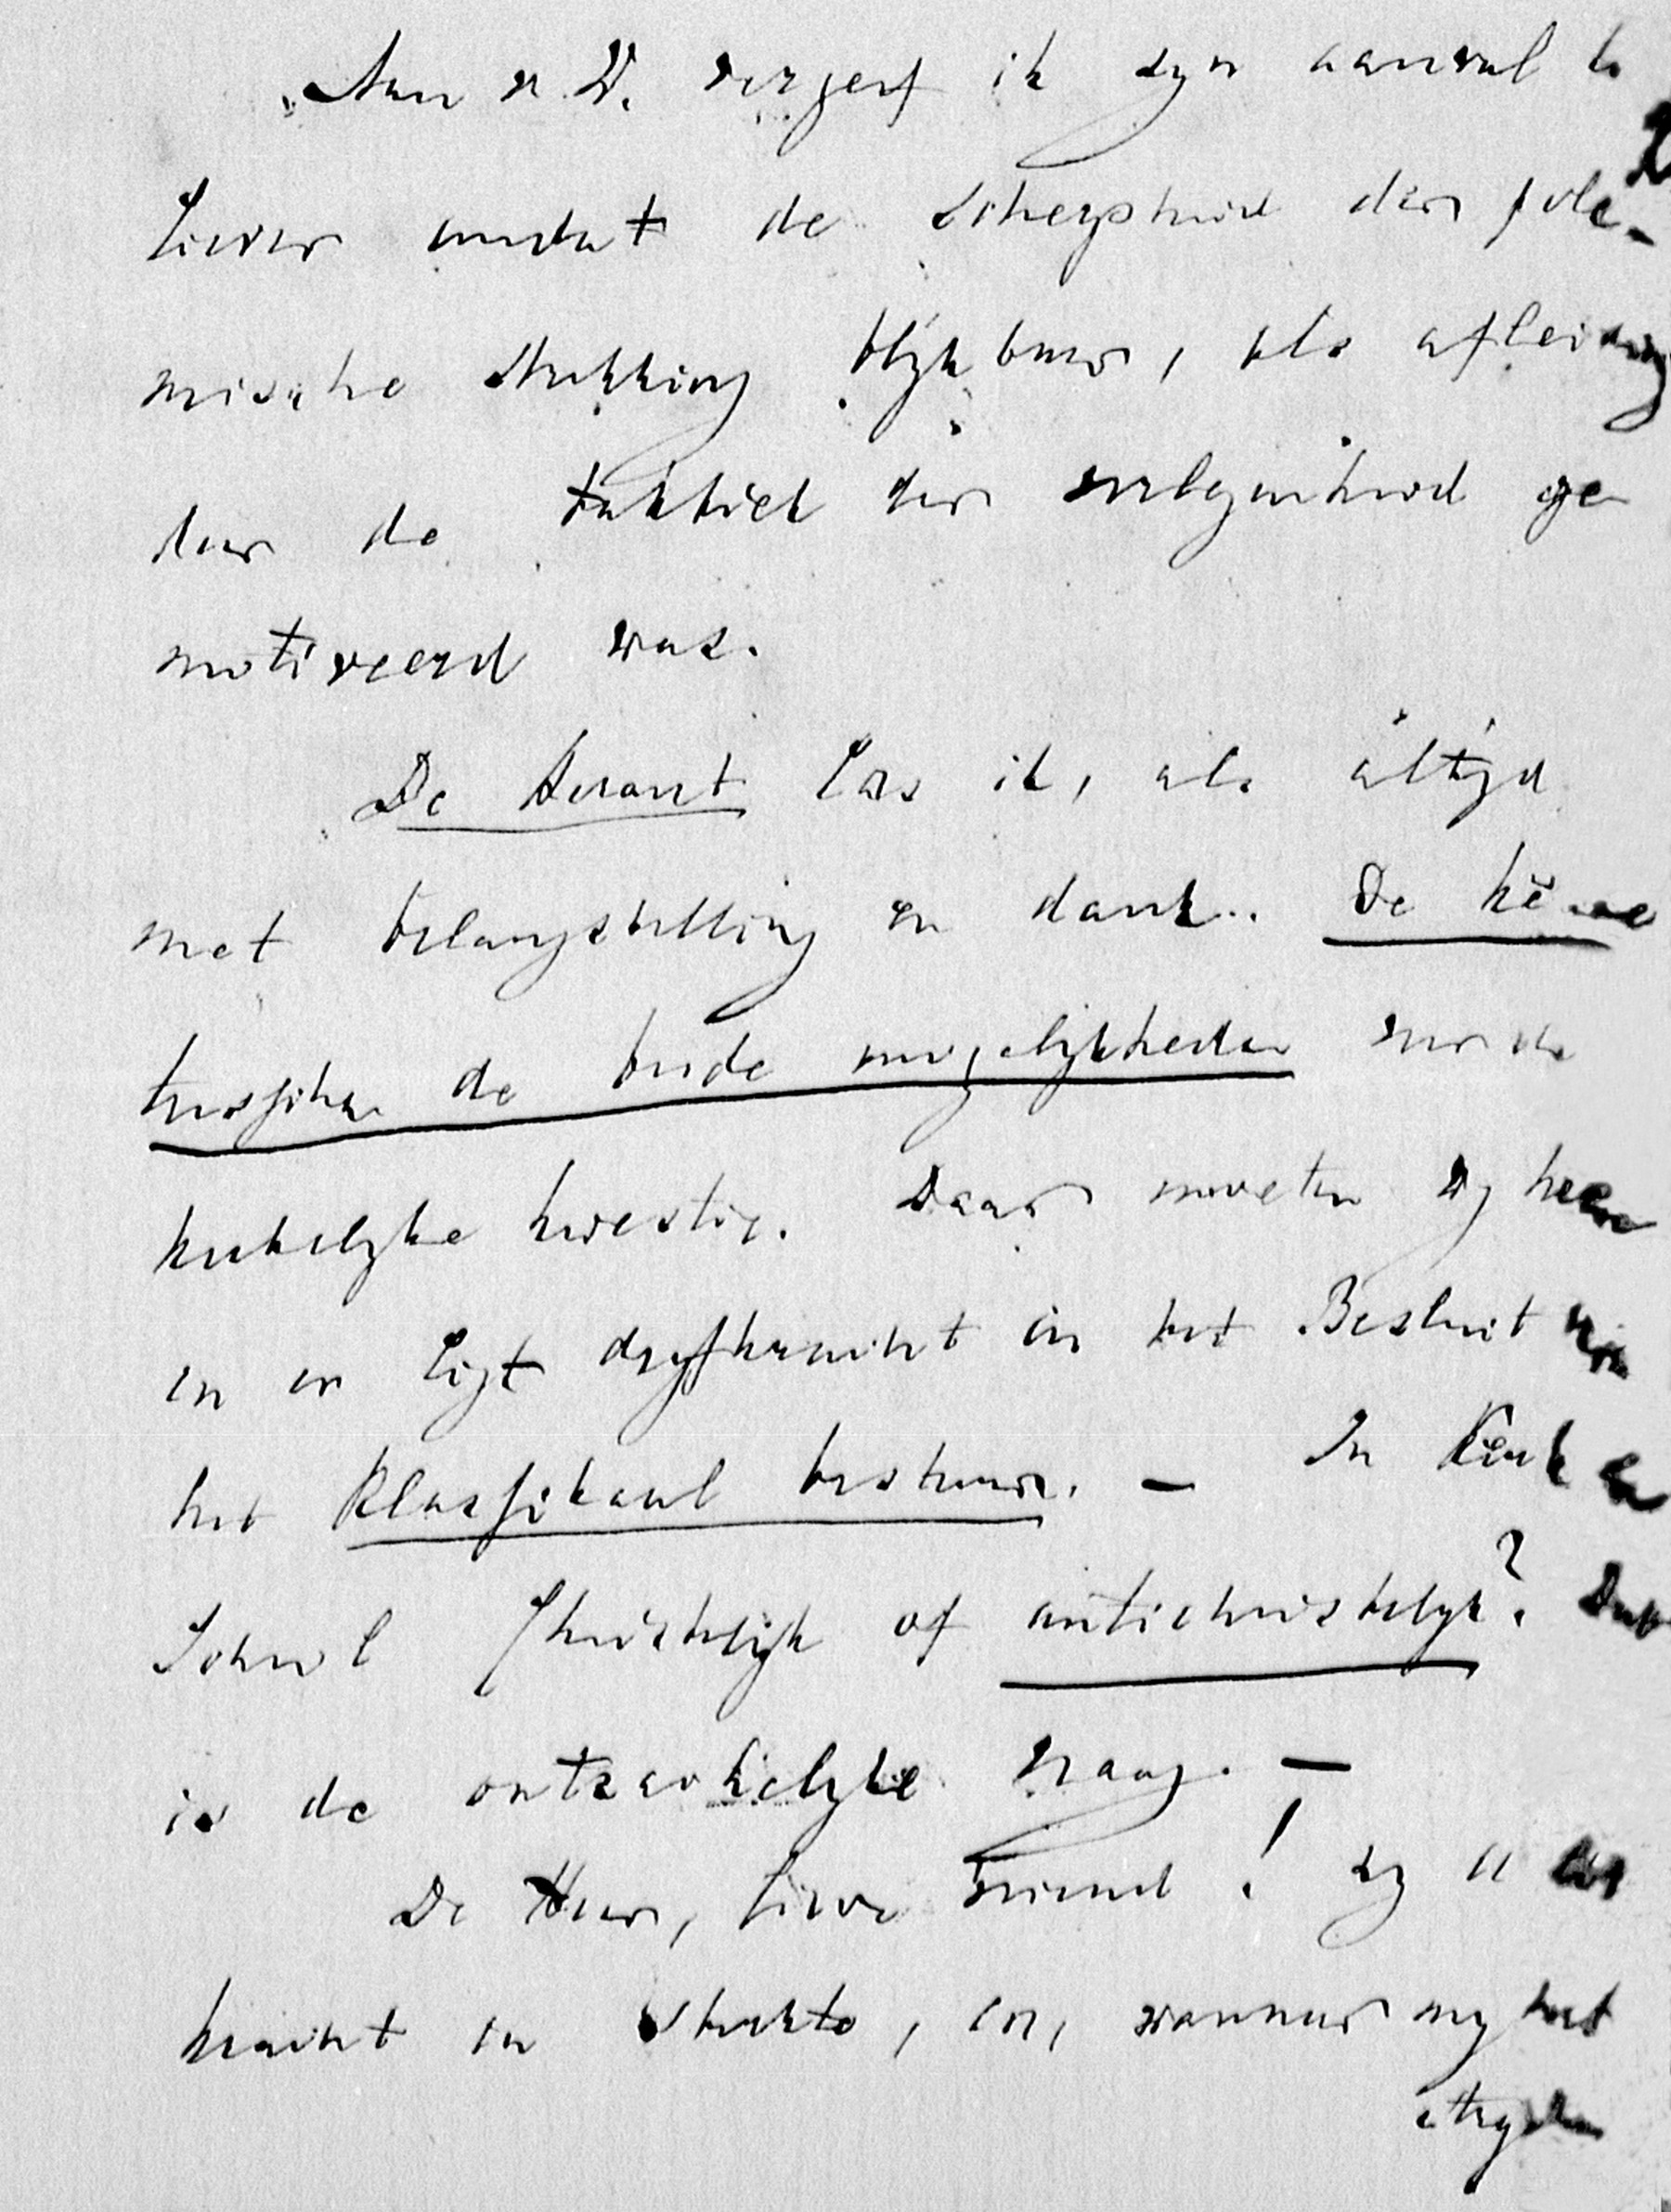 Aan v. D. vergeef ik zyn aanval te
liever omdat de scherpheid der pole-
mische strekking blykbaar, als afleiding
door de taktiek der verlegenheid ge
motiveerd was.
De Heraut las ik, als altijd
met belangstelling en dank. De keuze
tusschen de beide mogelijkheden in de
kerkelyke kwestie. Daar moeten wy heen
en er ligt dryfkracht in het Besluit van
het Klassikaal bestuur. — In Kerk en
School Christelijk of antichristelyk? Dat
is de ontzachelyke vraag. —
De Heer, lieve Vriend! zy u tot
kracht en sterkte, en, wanneer wy het